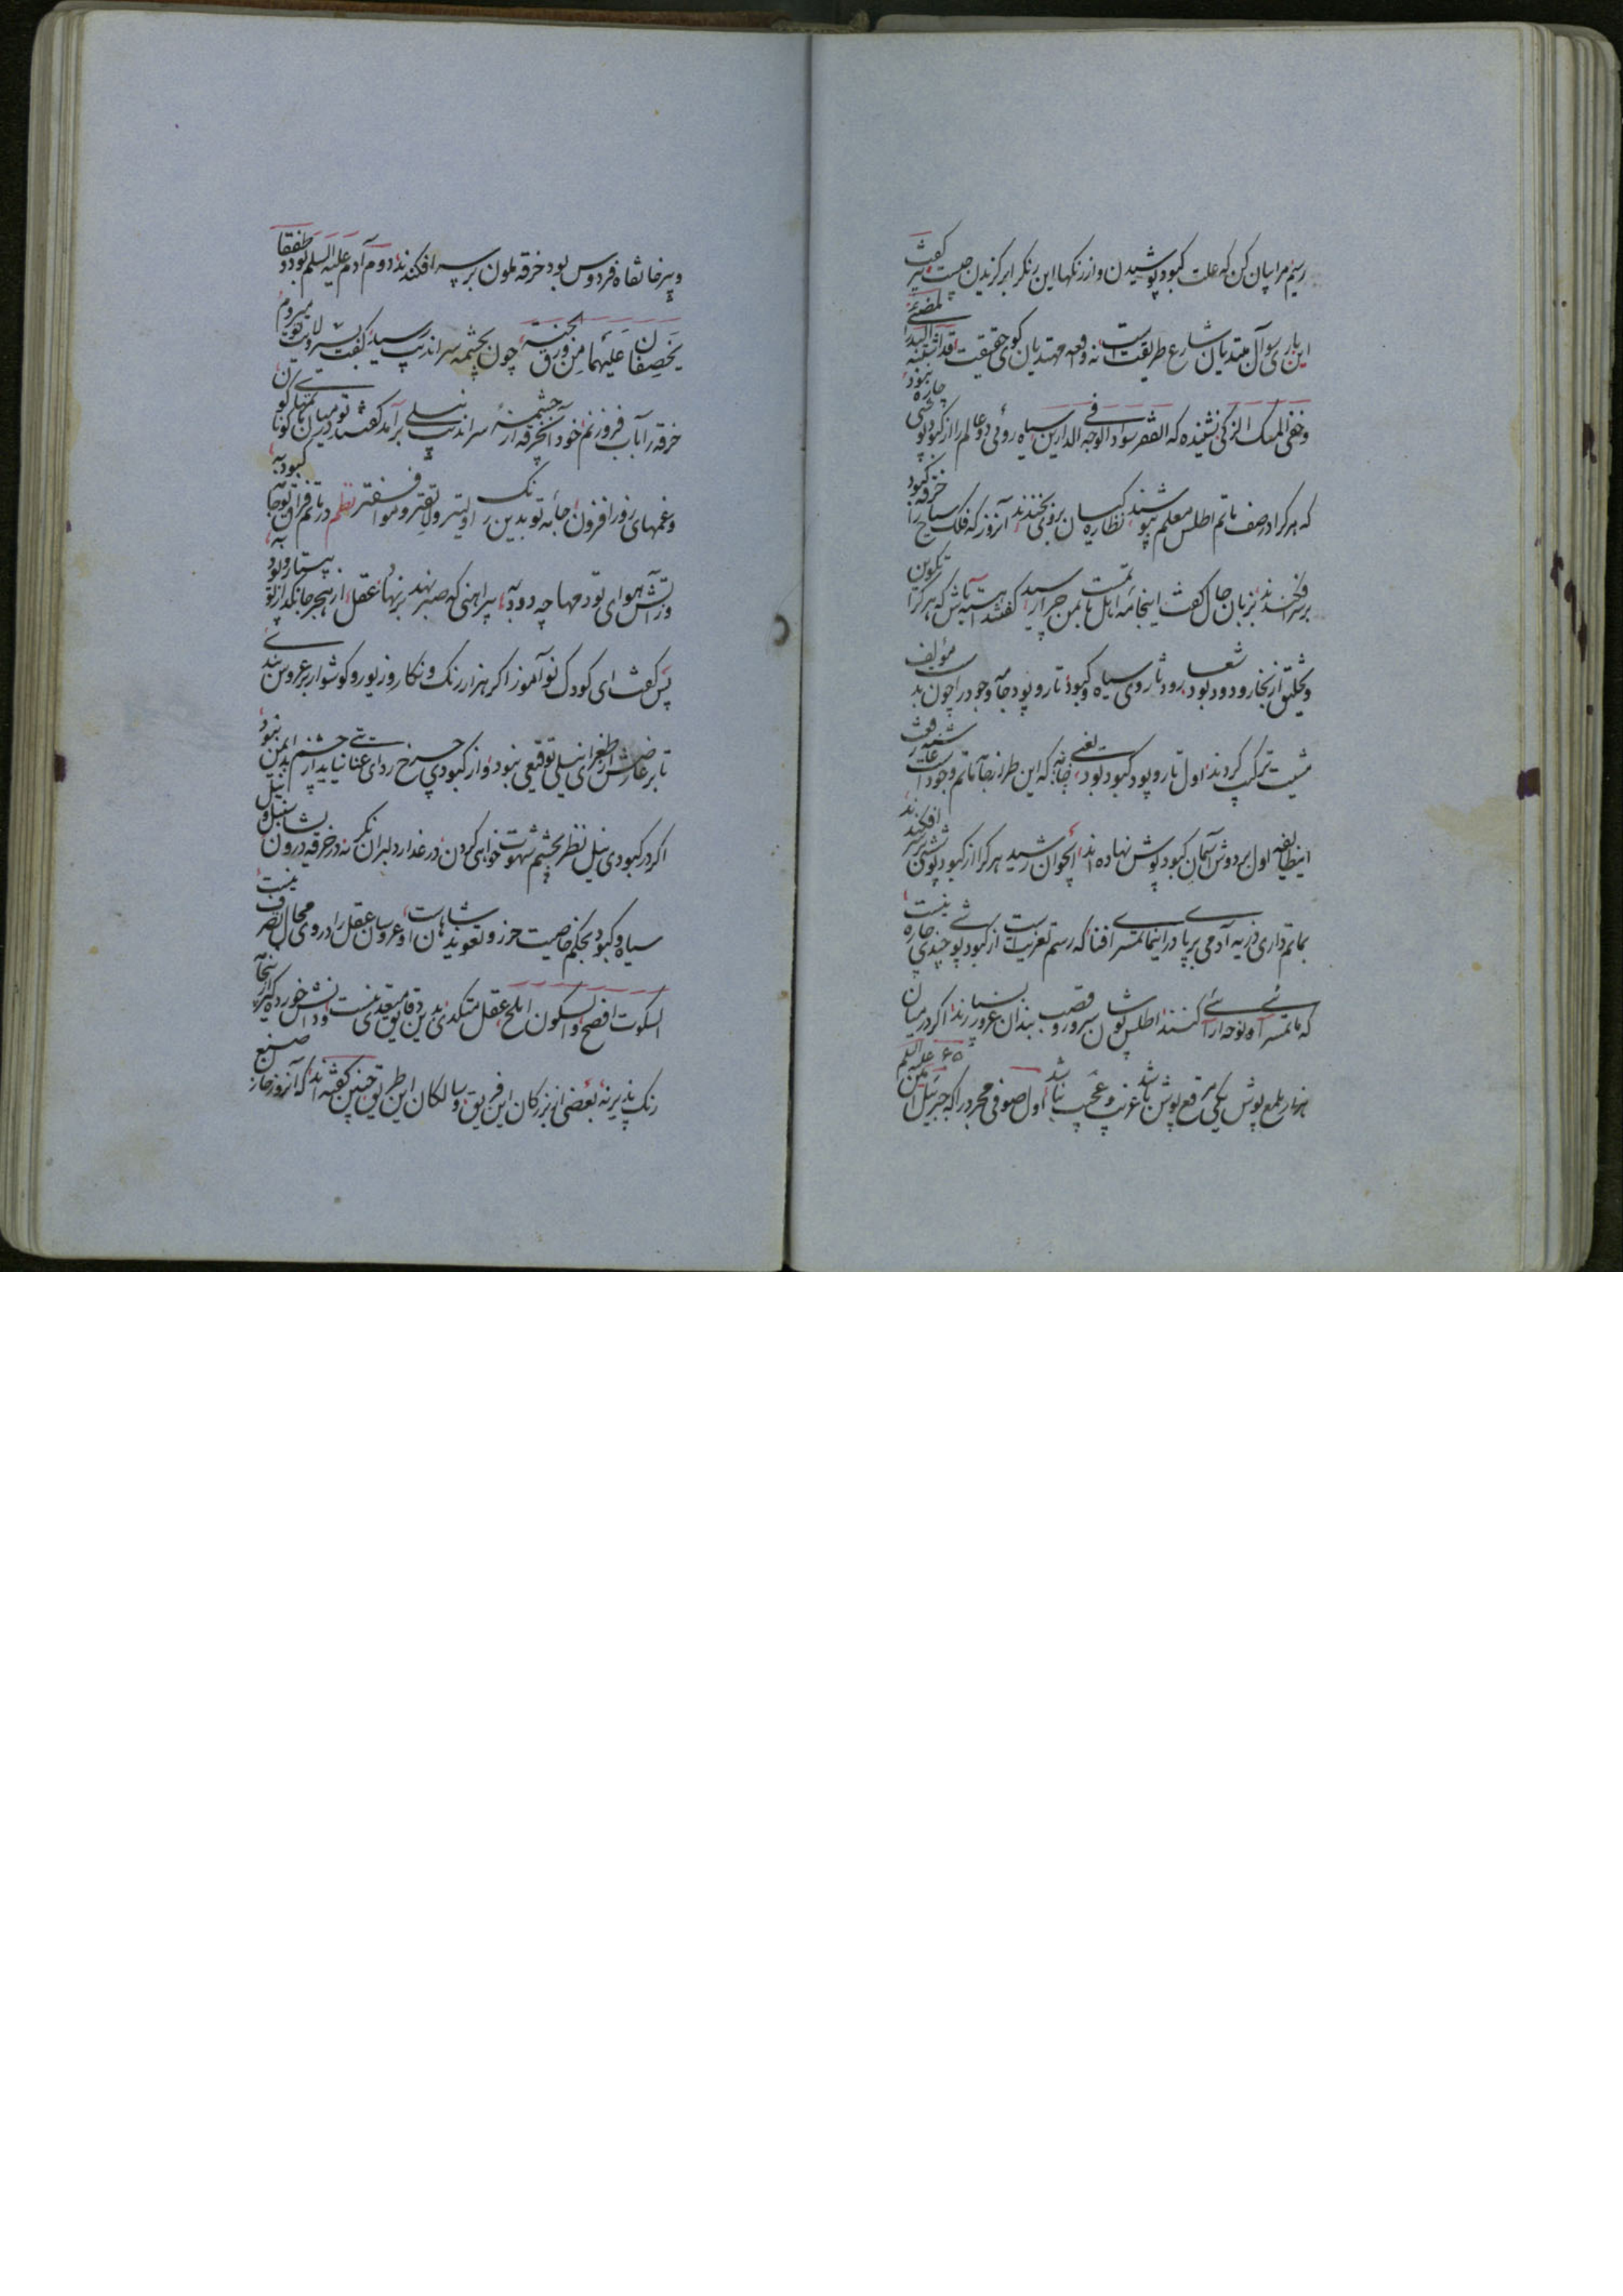 رسیم مرا بیان کن که علت کبود پوشیدن و از رنگها این رنگ را برگزیدن چیست پیر گفت
این بار سوآل مبتدیان شارع طریقت است نه واقعه مهتدیان کوی حقیقت قد اشتبه لمضئ البدر
وخفی المسک الزکی نشنیده که الفقر سواد الوجه فی الدارین سیاه روئی دو عالم را از کبود پوشی چاره نبود
که هر کرا در صف ماتم اطلس معلم پوشند نظاره کیان بروی بخندند آنروز که فلک سیاح را خرقه کبود
بر سر افکندند بزبان حال گفت اینجامه اهل ماتمست بمن چرا رسید گفتند آهسته باش که هر کرا تکوین
و تخلیق از بخار و دود بود شعار و دثار وی سیاه و کبود تار و پود جامه وجود را چون بد مؤلف
مشیت ترکیب کردند اول تار و پود کبود بود یعنی خانه که این طراز جامه ماتم وجود است عاشیه وقت
اینطایفه اول بر دوش آسمان کبود پوش نهاده اند انجوان رسید هر کرا از کبود پوشی سر افکند
بماتمداری ذریه آدمی بر پا در اینماتمسرای افنا که رسم تعزیت است از کبود پوشی چندی چاره نیست
که ماتمسرا نوحه آرائی کنند اطلس پوشان سرور و قصب بندان غرور بسیارند اکر در میان
هزار ملمع پوش یکی مرقع پوش باشد غریب و عجیب نباشد اول صوفی مجرد را که جبرئیل امین علیه السلم
و پیر خانقاه فردوس بود خرقه ملون بر سر افکندند دوم آدم علیه السلم بود و طفقا
یخصفان علیهما من ورق الجنة چون بچشمه سراندیب رسید گفت لا بیرون میروم
خرقه را باب فرو زنم خود آنخرقه از چشمهٔ سراندیب نیلی برآمد گفتند تو در میان ماتمهای کوناکون
و غمهای روز افزون جامه تو بدین رنگ اولیتر و لایقتر و موافقتر نظم در ماتم فراق تو جامه کبود به
وز آتش هوای تو دمها چه دود به پیراهنی که صبر نهد بر نهاد عقل از هجر جانکداز تو بیتار و پود به
پس گفت ای کودک نو آموز اکر هزار رنگ و نکار و زیور و گوشوار بر عروس بندی
تا بر عارضش از طغرای نیلی توقیعی نبود و از کبودی چرخ ردائی عنا نیابد از چشم بد ایمن نبود
اکر در کبودی نیل نظر بچشم شهوت خواهی کردن در عذار دلبران نکر نه در خرقه درون نشان نیل
سیاه و کبود بحکم خاصیت حرز و تعوید شاهانست او عروسان عقل را در وی مجال تصرف نیست
السکوت افصح والسکون املح عقل متکدی بدین دقایق متعدی نیست و دانش خورده کیر اینجا
رنگ پذیر نه بعضی از بزرکان این فریق و سالکان این طریق چنین گفته اند که آنروز خانه صنع